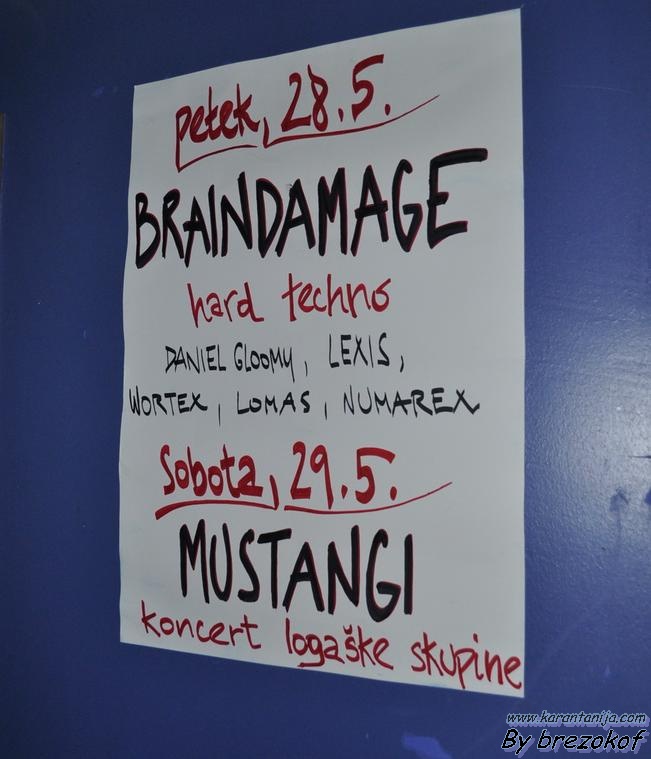 petek, 28.5.
BRAINDAMAGE
hard techno
DANIEL GLOOMY, LEXIS,
WORTEX, LOMAS, NUMAREX
Sobota, 29.5.
MUSTANGI
koncert logaške skupine
www.karantanija.com
By brezokof